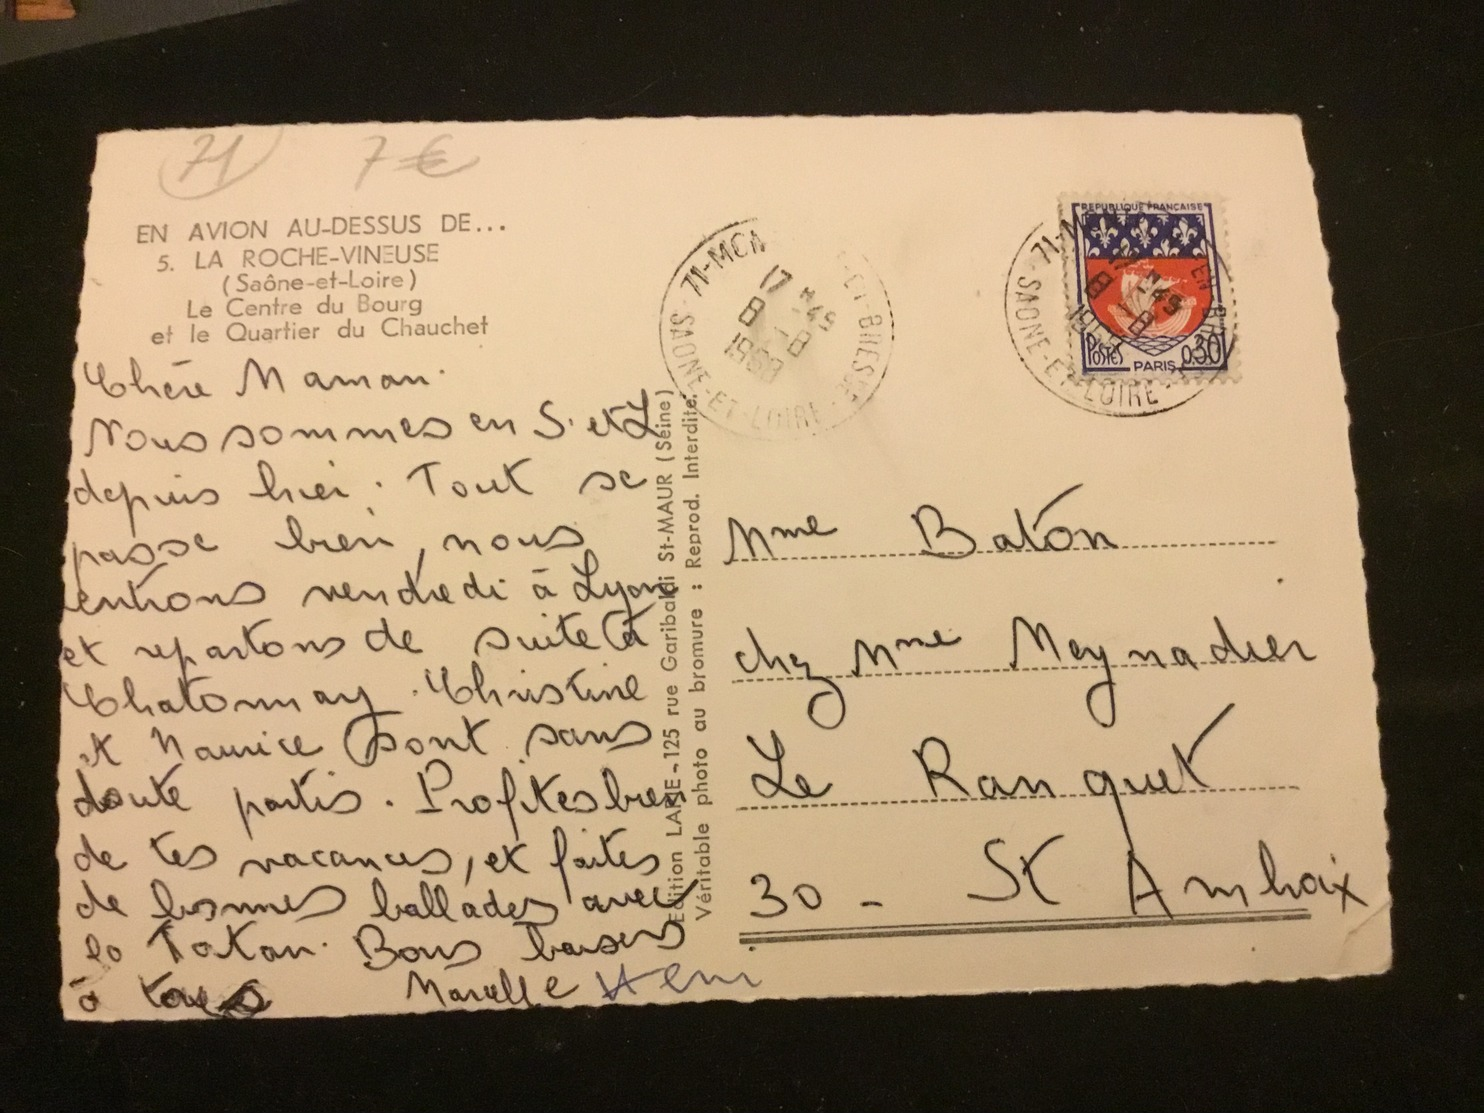 71 7€
EN AVION AU-DESSUS DE...
5. LA ROCHE-VINEUSE
(Saône-et-Loire)
Le Centre du Bourg
et le Quartier du Chauchet
Chère Maman.
Nous sommes en S. et L
depuis hier. Tout se
passe bien, nous
entrons vendredi à Lyon
et repartons de suite à
Chatonnay. Christine
et Maurice sont sans
doute partis. Profites bien
de tes vacances, et faites
de bonnes ballades avec
la Tatan. Bons baisers
à
Marcelle
Edition LAPIE - 125 rue Garibaldi St-MAUR (Seine)
Véritable photo au bromure : Reprod. Interdite.
71-
EN-BRESSE
17 H 45
8 - 8
1968
SAONE-ET-LOIRE
REPUBLIQUE FRANÇAISE
POSTES 0,30
PARIS
71-
EN-BRESSE
SAONE-ET-LOIRE
Mme Baton
chez Mme Meynadier
Le Ranquet
30 - St Ambroix